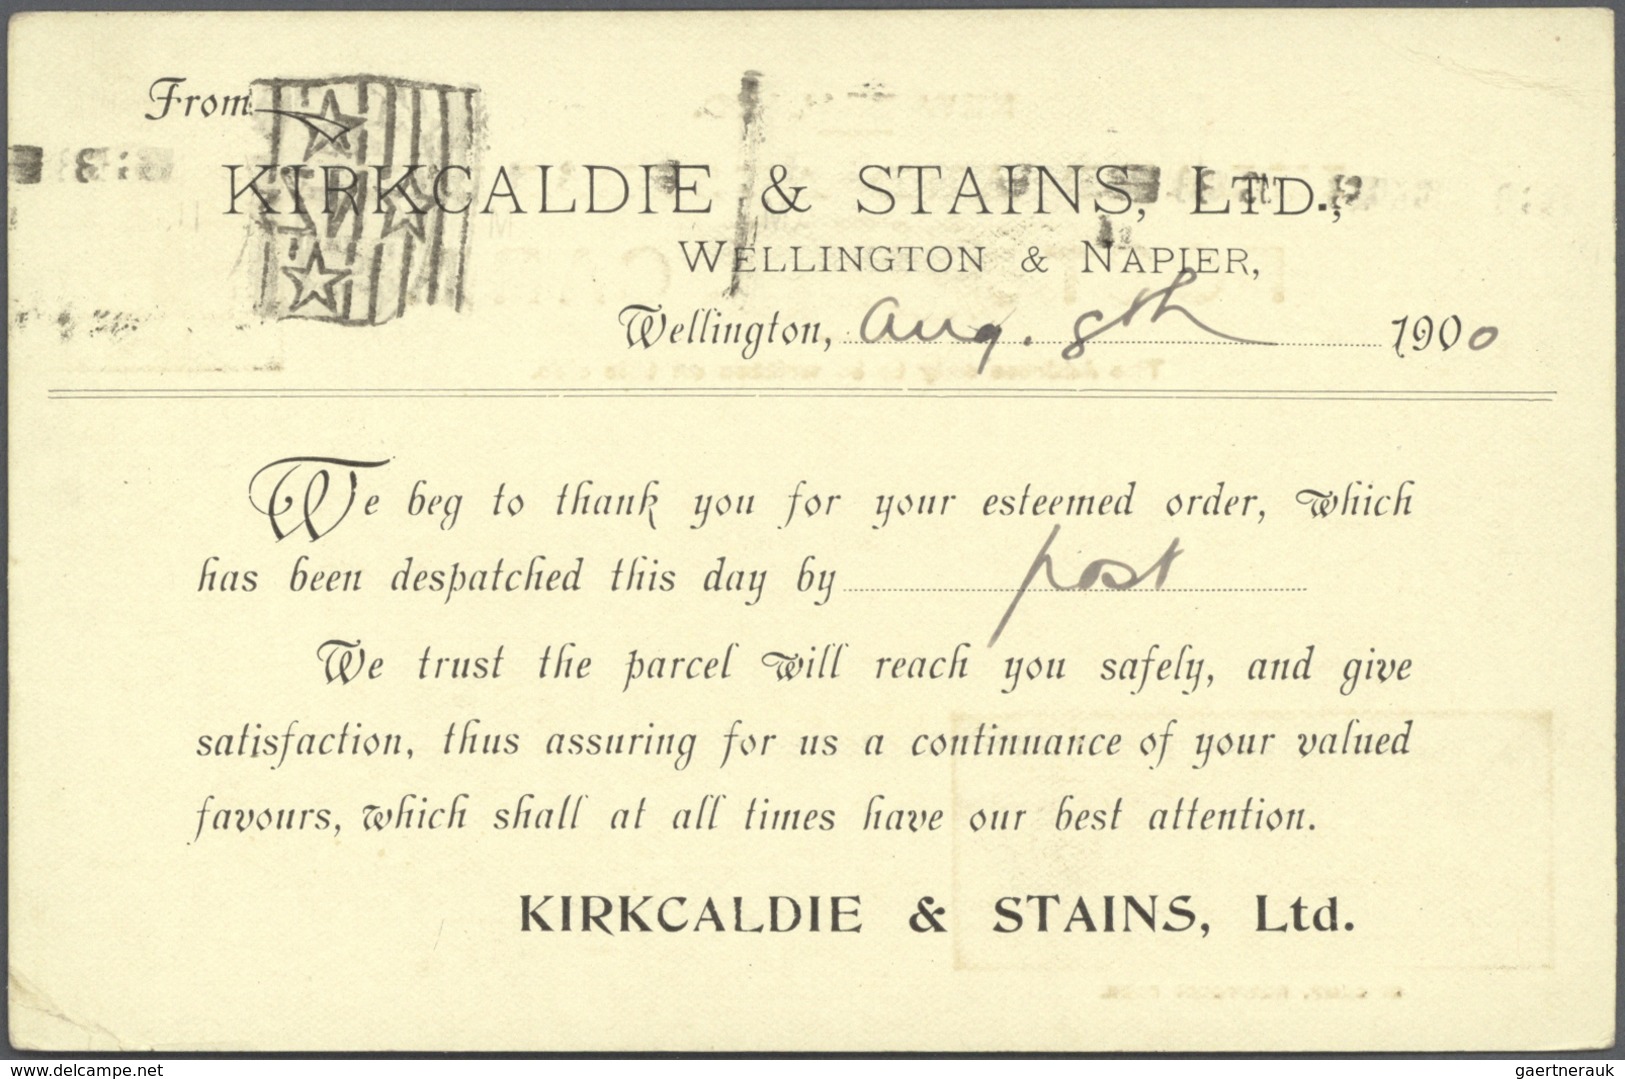 From
KIRKCALDIE & STAINS, LTD.,
WELLINGTON & NAPIER,
Wellington, Aug. 8th 1900
We beg to thank you for your esteemed order, which
has been despatched this day by post
We trust the parcel will reach you safely, and give
satisfaction, thus assuring for us a continuance of your valued
favours, which shall at all times have our best attention.
KIRKCALDIE & STAINS, Ltd.
www.delcampe.net
gaertnerauk